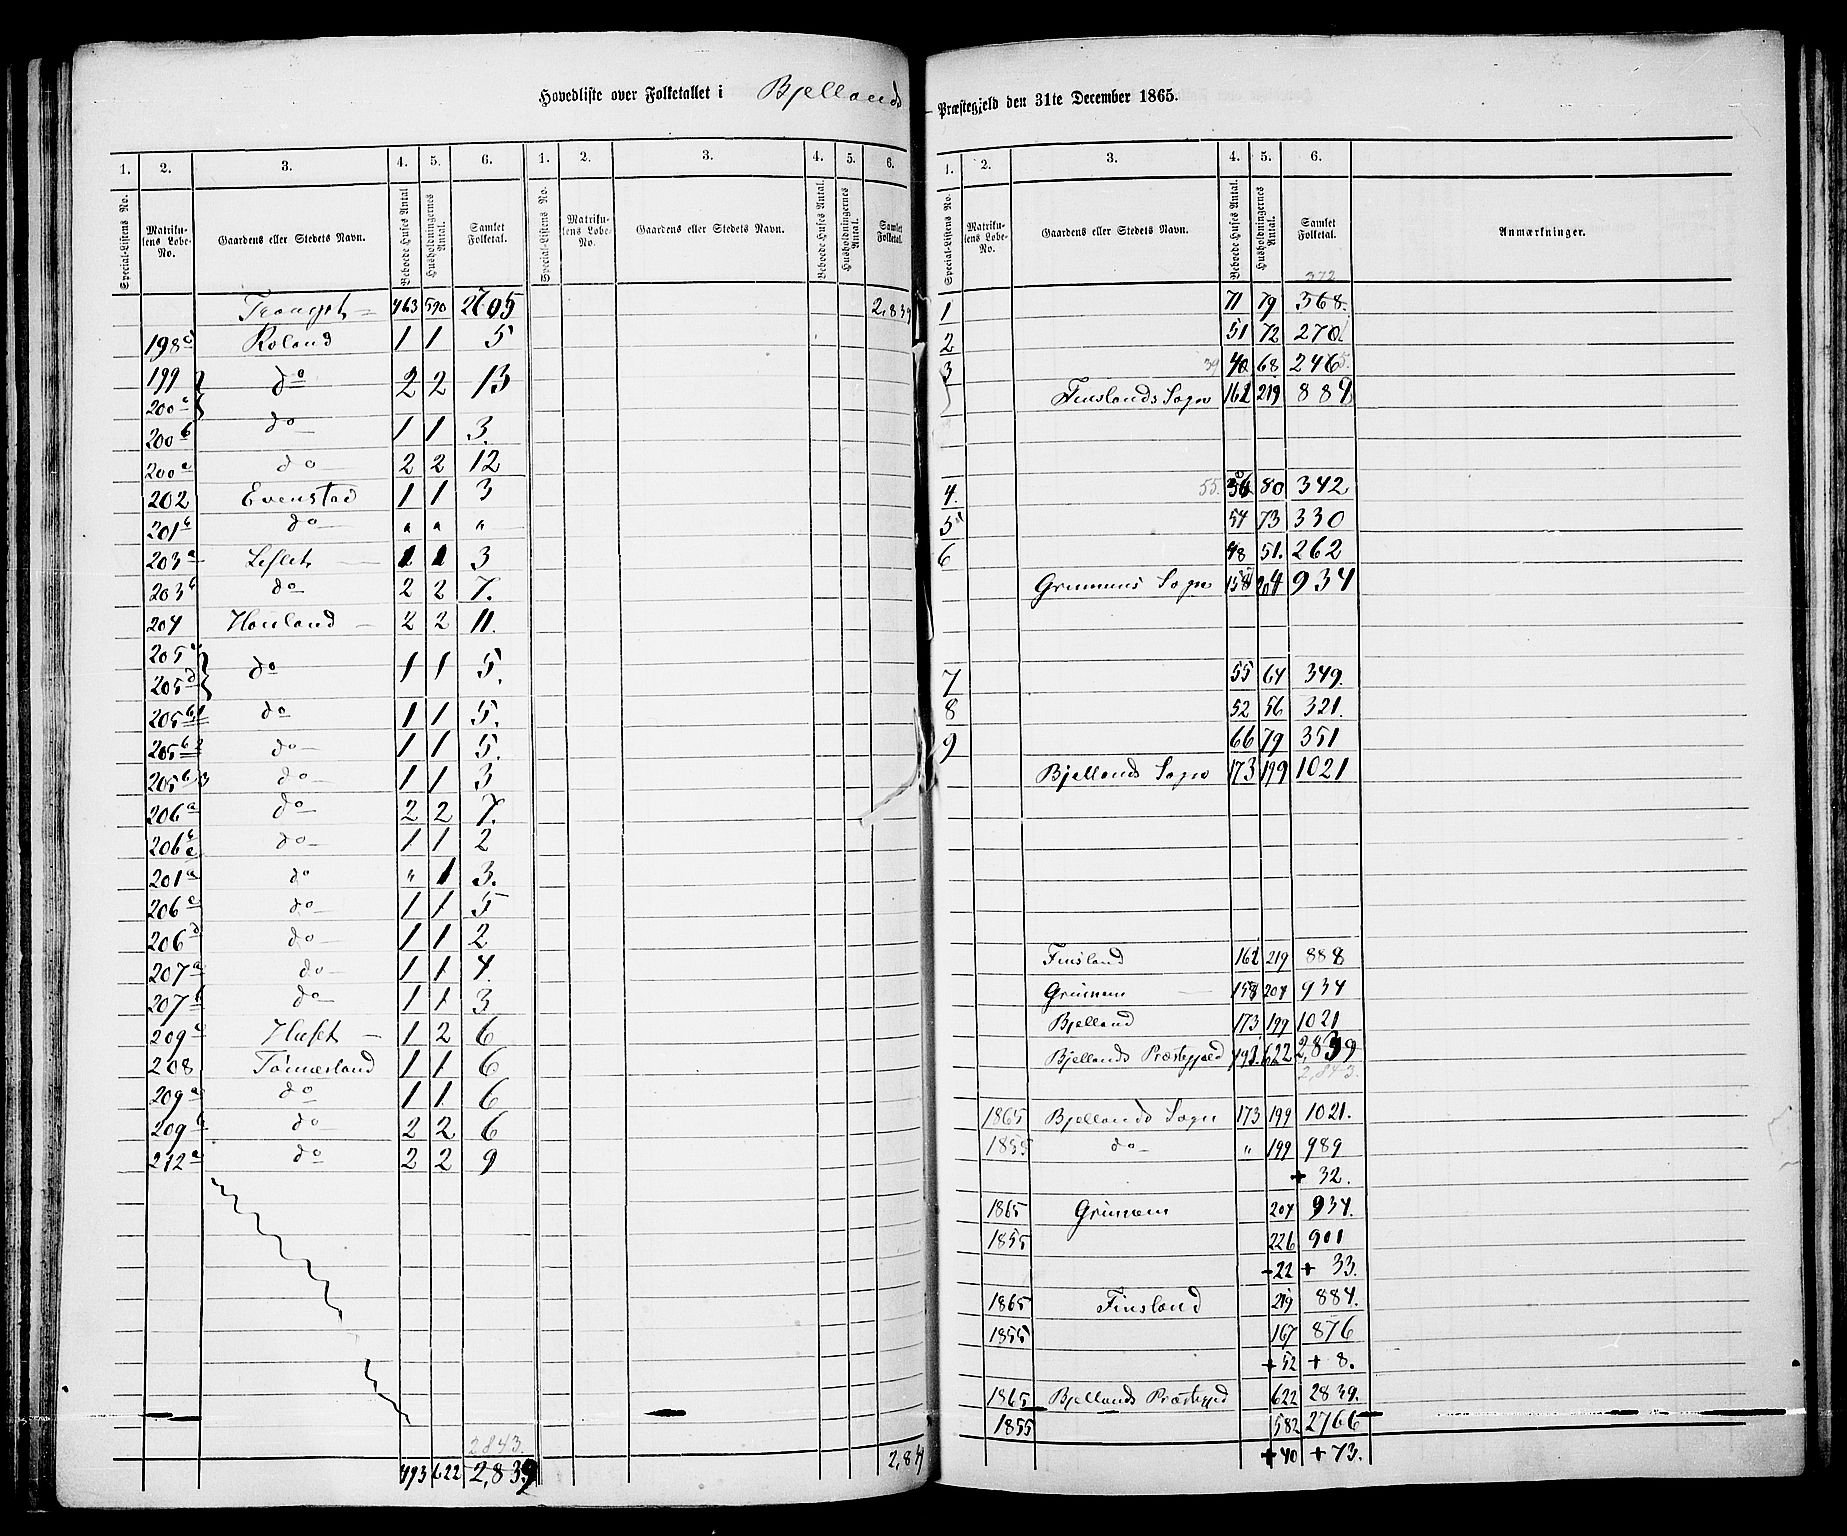 Hovedliste over Folketallet i Bjellands
1. 2. 3. 4. 5. 6. 1. 2. 3. 4. 5. 6.
Special-Listens No. Matrikulens Løbe-No. Gaardens eller Stedets Navn. Beboede Huses Antal. Husholdningernes Antal. Samlet Folketal. Special-Listens No. Matrikulens Løbe-No. Gaardens eller Stedets Navn. Beboede Huses Antal. Husholdningernes Antal. Samlet Folketal.
463 590 2705 2,839
198 Roland 1 1 5
199 do 2 2 13
200
200 b do 1 1 3.
200 do 2 2 12
202 Evenstad 1 1 3
201 do " " "
203 a 1 1 3
203 b do 2 2 7.
204 Houland 2 2 11.
205
205 d do 1 1 5.
205 b 1 do 1 1 5.
205 b 2 do 1 1 5.
205 b 3 do 1 1 3
206 a do 2 2 7.
206 do 1 1 2
201 a do " 1 3.
206 do 1 1 5
206 d do 1 1 2
207 a do 1 1 4.
207 b do 1 1 3
209 Huset 1 2 6
208 1 1 6
209 a do 1 1 6
209 b do 2 2 6
212 a do 2 2 9
2843.
493 622 2,839 2,839
Præstegjeld den 31te December 1865.
1. 2. 3. 4. 5. 6.
Special-Listens No. Matrikulens Løbe-No. Gaardens eller Stedets Navn. Beboede Huses Antal. Husholdningernes Antal. Samlet Folketal. Anmærkninger.
372
1 71 79 368.
2 51 72 270
3 39 40 68 246
Finslands Sogn 161 219 884
4. 55. 56 80 342
5 54 73 330
6 48 51. 262
Grinnems Sogn 158 204 934
7 55 64 349.
8 52 56 321.
9 66 79 351
Bjellands Sogn 173 199 1021
Finsland 161 219 888
Grinnem 158 204 934
Bjelland 173 199 1021
Bjellands Præstegjeld 493 622 2,839
2,843.
1865 Bjellands Sogn 173 199 1021.
1855 do " 199 989
+ 32.
1865 Grinnem 204 934.
1855 226 901
-22 + 33.
1865 Finsland 219 884.
1855 167 876
+52 + 8.
1865 Bjellands Præstegjeld 622 2839.
1855 582 2766
+40 +73.